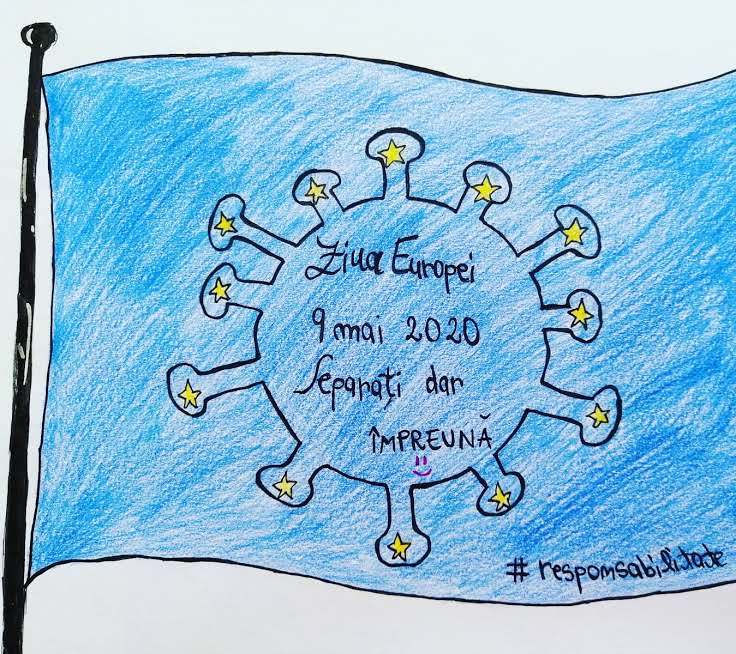 Ziua Europei
9 mai 2020
Separați dar
ÎMPREUNĂ
# responsabilitate